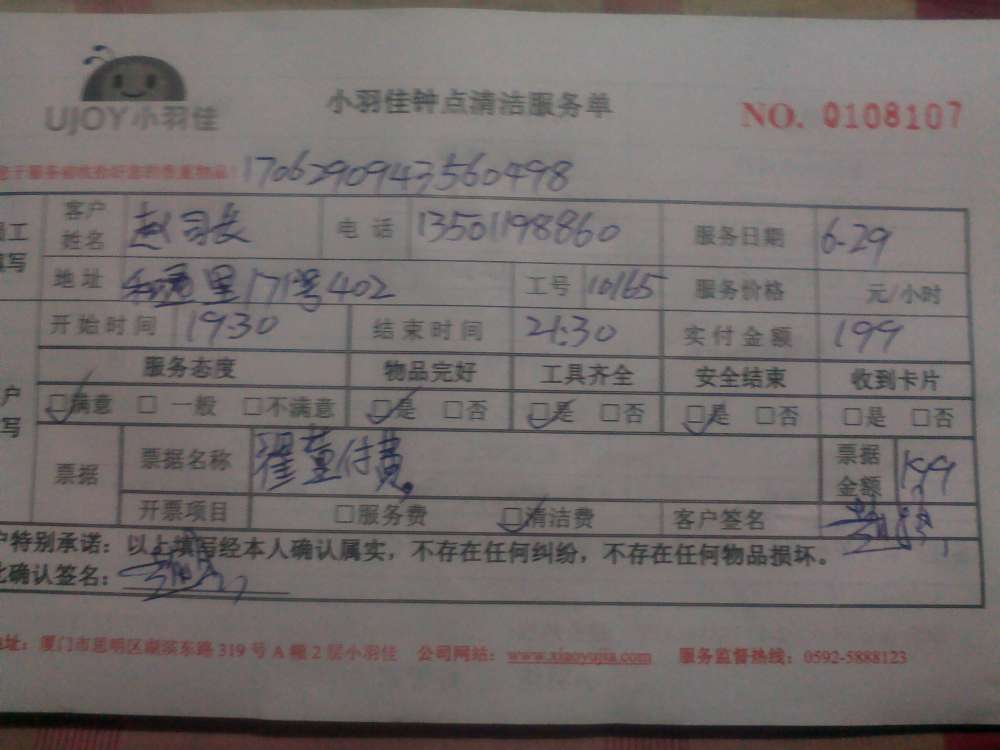 UJOY小羽佳
小羽佳钟点清洁服务单
NO. 0108107
17062909943560498
客户姓名 赵司长 电话 13501198860 服务日期 6-29
地址 里171号402 工号 10165 服务价格 元/小时
开始时间 19:30 结束时间 21:30 实付金额 199
服务态度 物品完好 工具齐全 安全结束 收到卡片
□满意 □一般 □不满意 □是 □否 □是 □否 □是 □否 □是 □否
票据 票据名称 翟董付费 票据金额 199
开票项目 □服务费 □清洁费 客户签名
户特别承诺：以上填写经本人确认属实，不存在任何纠纷，不存在任何物品损坏。
此确认签名：
地址：厦门市思明区湖滨东路319号A幢2层小羽佳 公司网站：www.xiaoyujia.com 服务监督热线：0592-5888123